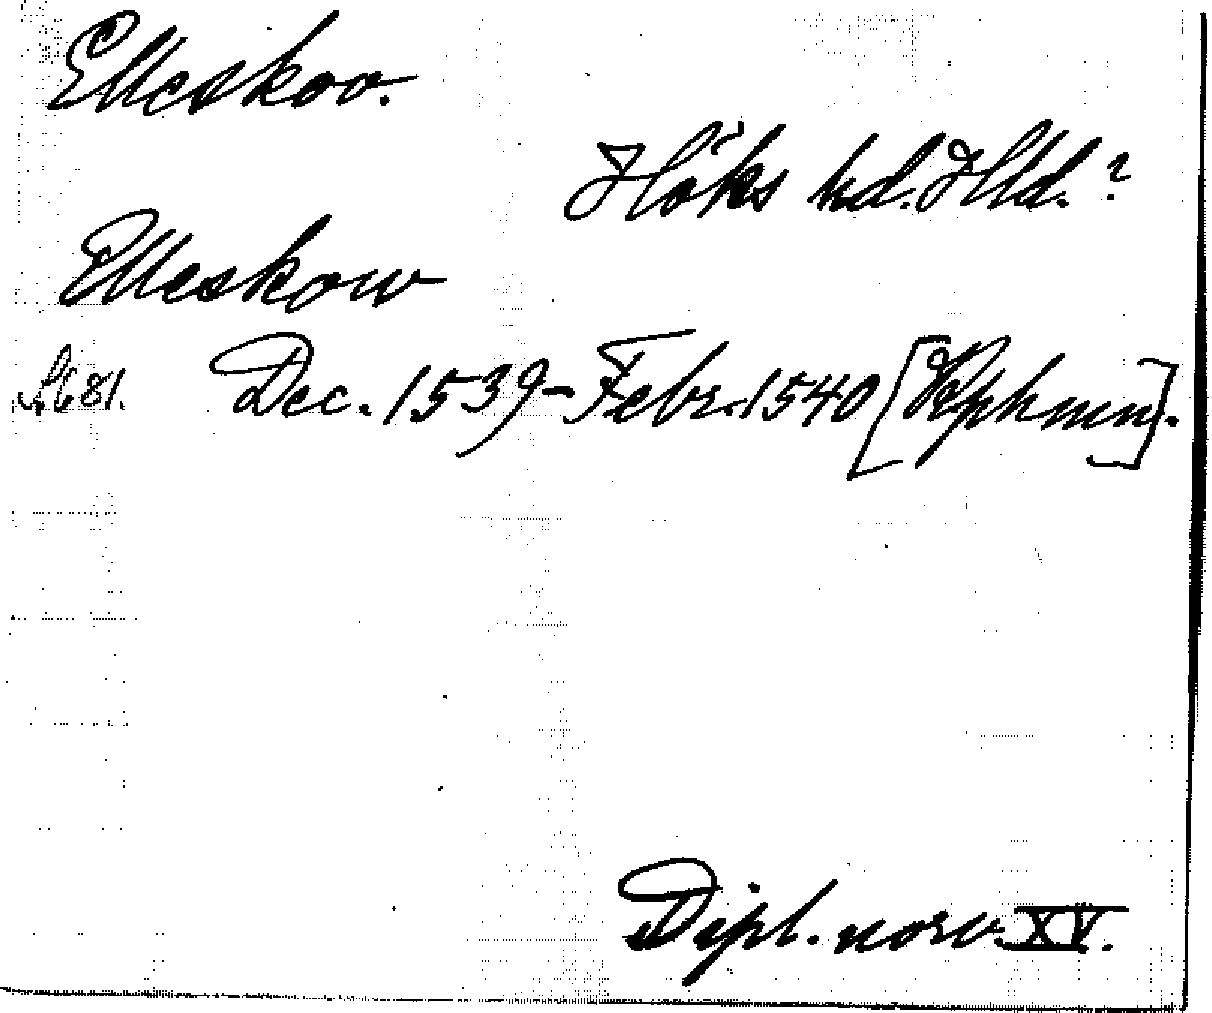 Elleskov.
Höks hd. Hld.?
Elleskow
S. 681. Dec. 1539-Febr. 1540 [Kphmn].
Dipl. norv. XV.